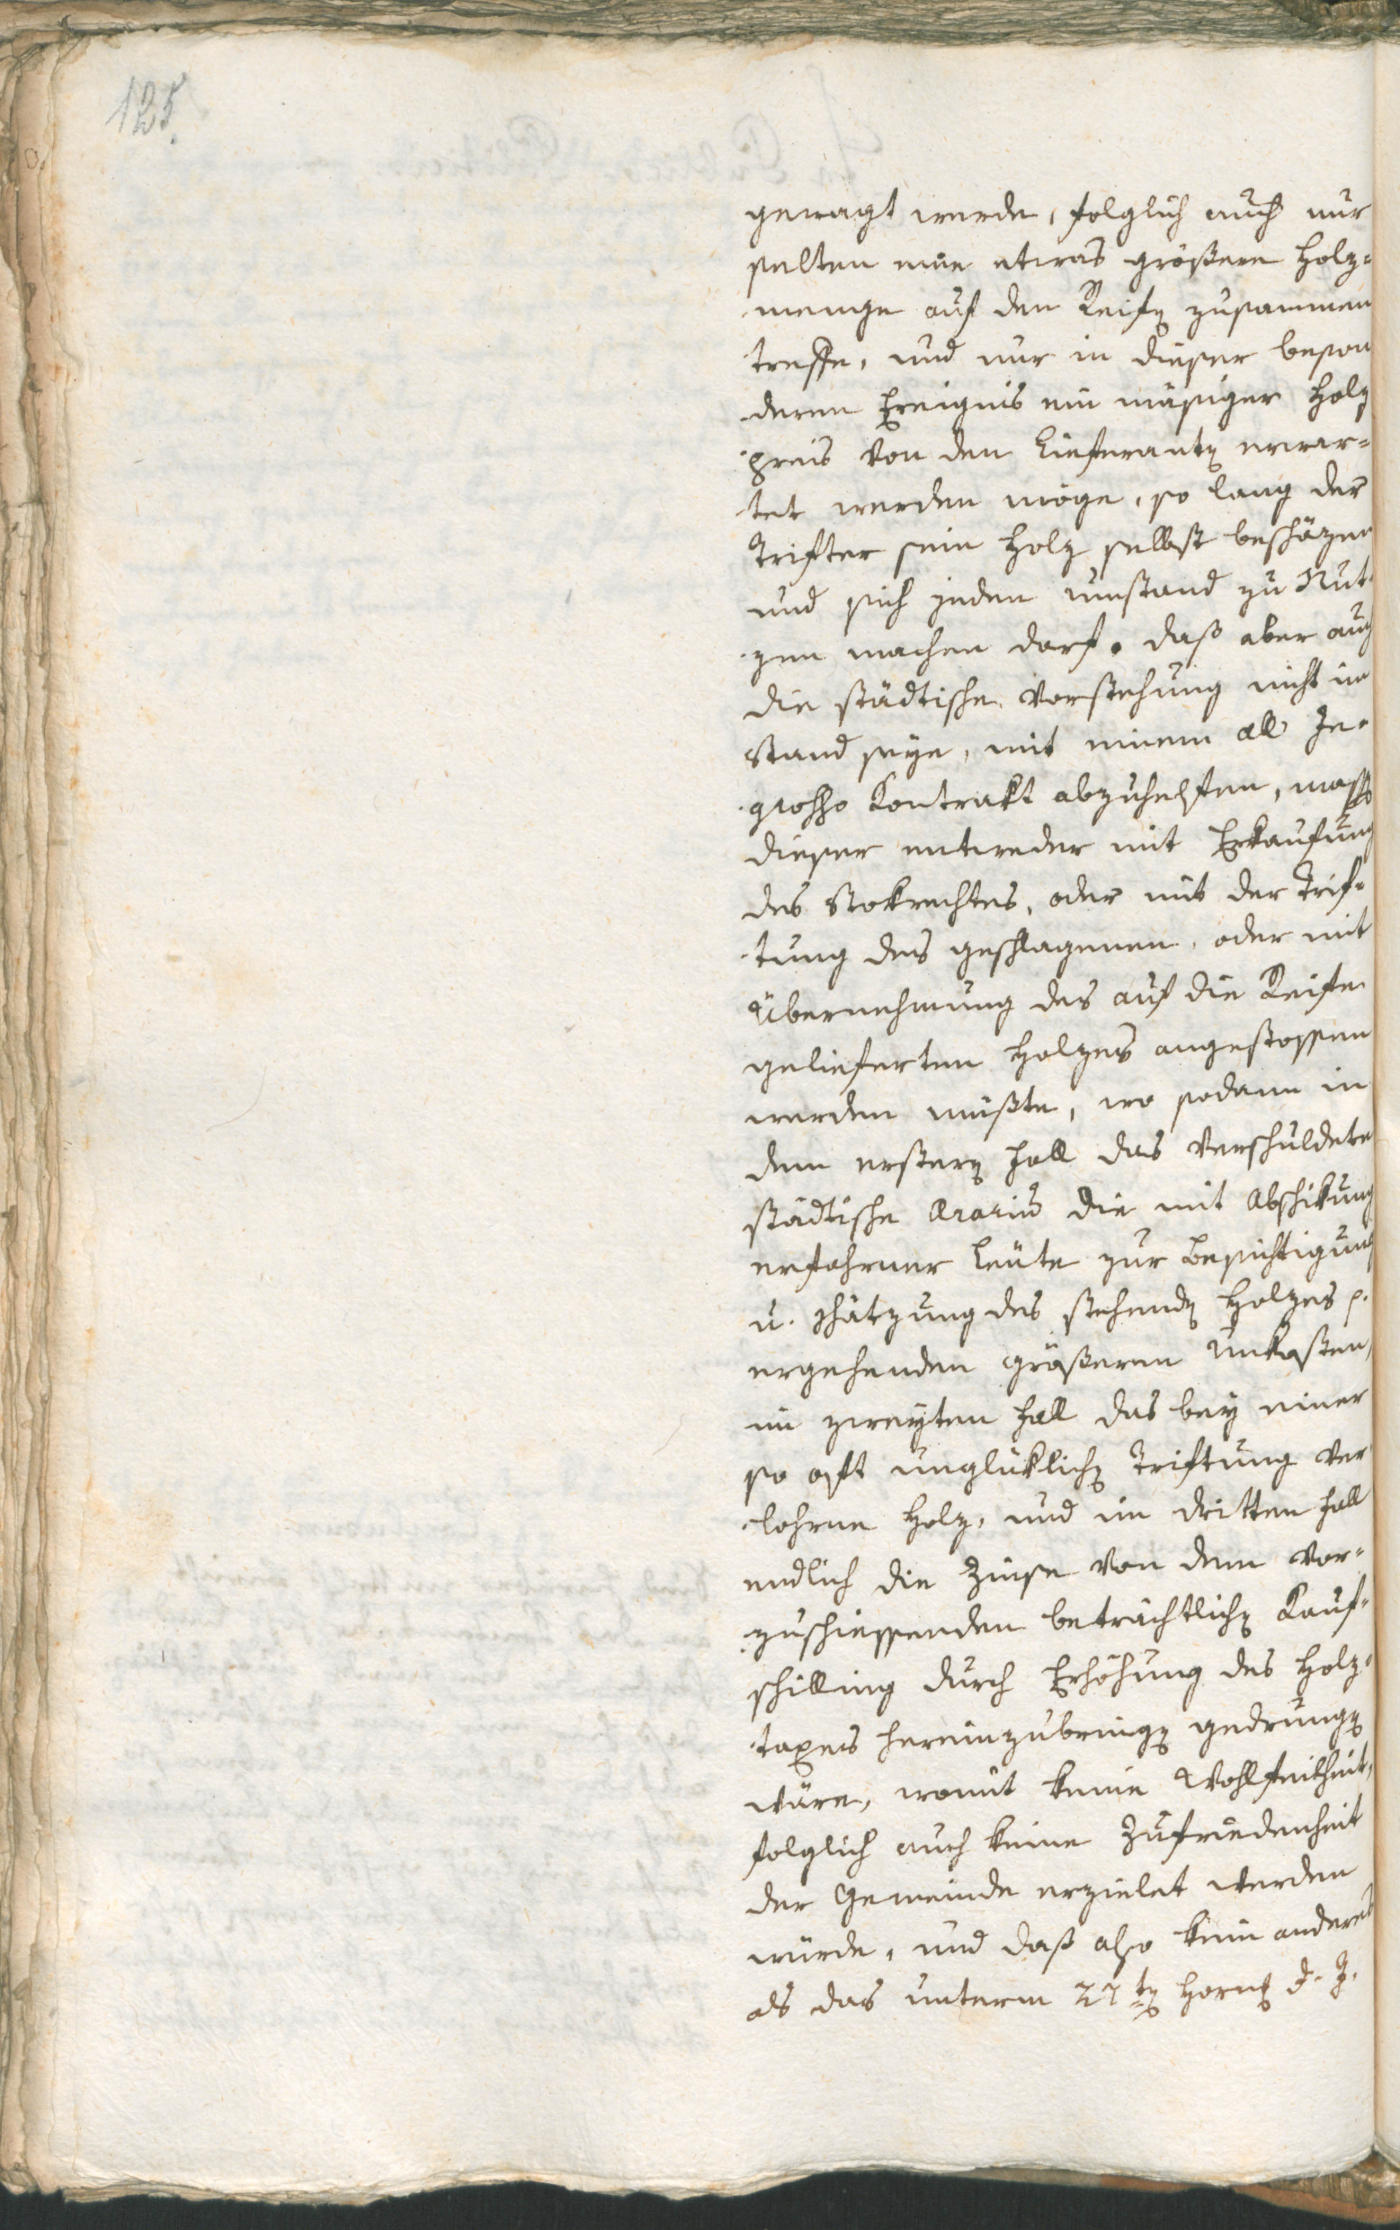 125.
gewagt werde, folglich auch nur
selten eine etwas größere Holz-
menge auf den Reifen zusammen
treffe, und nur in dieser beson
deren Ereignis ein mäsiger Holz
preis von den Lieferanten erwar-
tet werden möge, so lang der
Trifter sein Holz selbst beschäzen
und sich jeden umstand zu Nut
zen machen darf. daß aber auch
die städtische Vorstehung nicht im
Stand seye, mit einem all In
grosso Kontrakt abzuhelfen, mass
dieser entweder mit Erkaufung
des Stokrechtes, oder mit der Trif-
tung des geschlagenen, oder mit
Übernehmung des auf die Reife
gelieferten Holzes angestossen
werden müßte, wo sodann in
dem ersteren Fall das verschuldete
städtische Ararium die mit Abschikung
erfahrner Leute zur Besichtigung
u. Schätzung des stehenden Holzes
ergehenden größeren Unkosten,
im zweyten Fall das bey einer
so oft unglüklichen Triftung ver
lohrne Holz, und im dritten Fall
endlich die Zinse von dem vor-
zuschiessenden beträchtlichen Kauf-
schilling durch Erhöhung des Holz-
taxes hereinzubringen gedrungen
wäre, womit keine Wohlfeilheit,
folglich auch keine Zufriedenheit
der Gemeinde erzielet werden
würde, und daß also kein anderes
als das unterm 27ten Horn. d. J.